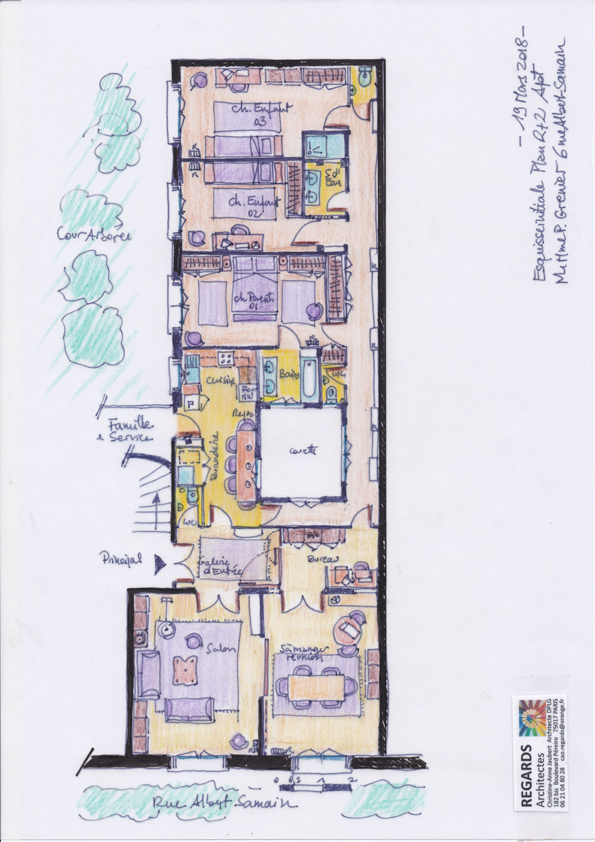 - 19 Mars 2018 -
Esquisse intiale Plan R+2 Apt
M et Mme P. Grenier 6 rue Albert-Samain
ch. Enfant
03
Sdl
Eau
ch. Enfant
02
Cour Arborée
ch Parents
01
Cuisine
Bains
WC
Repas
Famille
& Service
Buanderie
courette
WC
Principal
Galerie
d'Entrée
Bureau
Salon
SàManger
réunion
0 0,5 1 2
Rue Albert-Samain
REGARDS
Architectes
Christine-Anne Jaubert Architecte DPLG
182 bis Boulevard Péreire 75017 PARIS
06 21 04 80 28 cao.regards@orange.fr